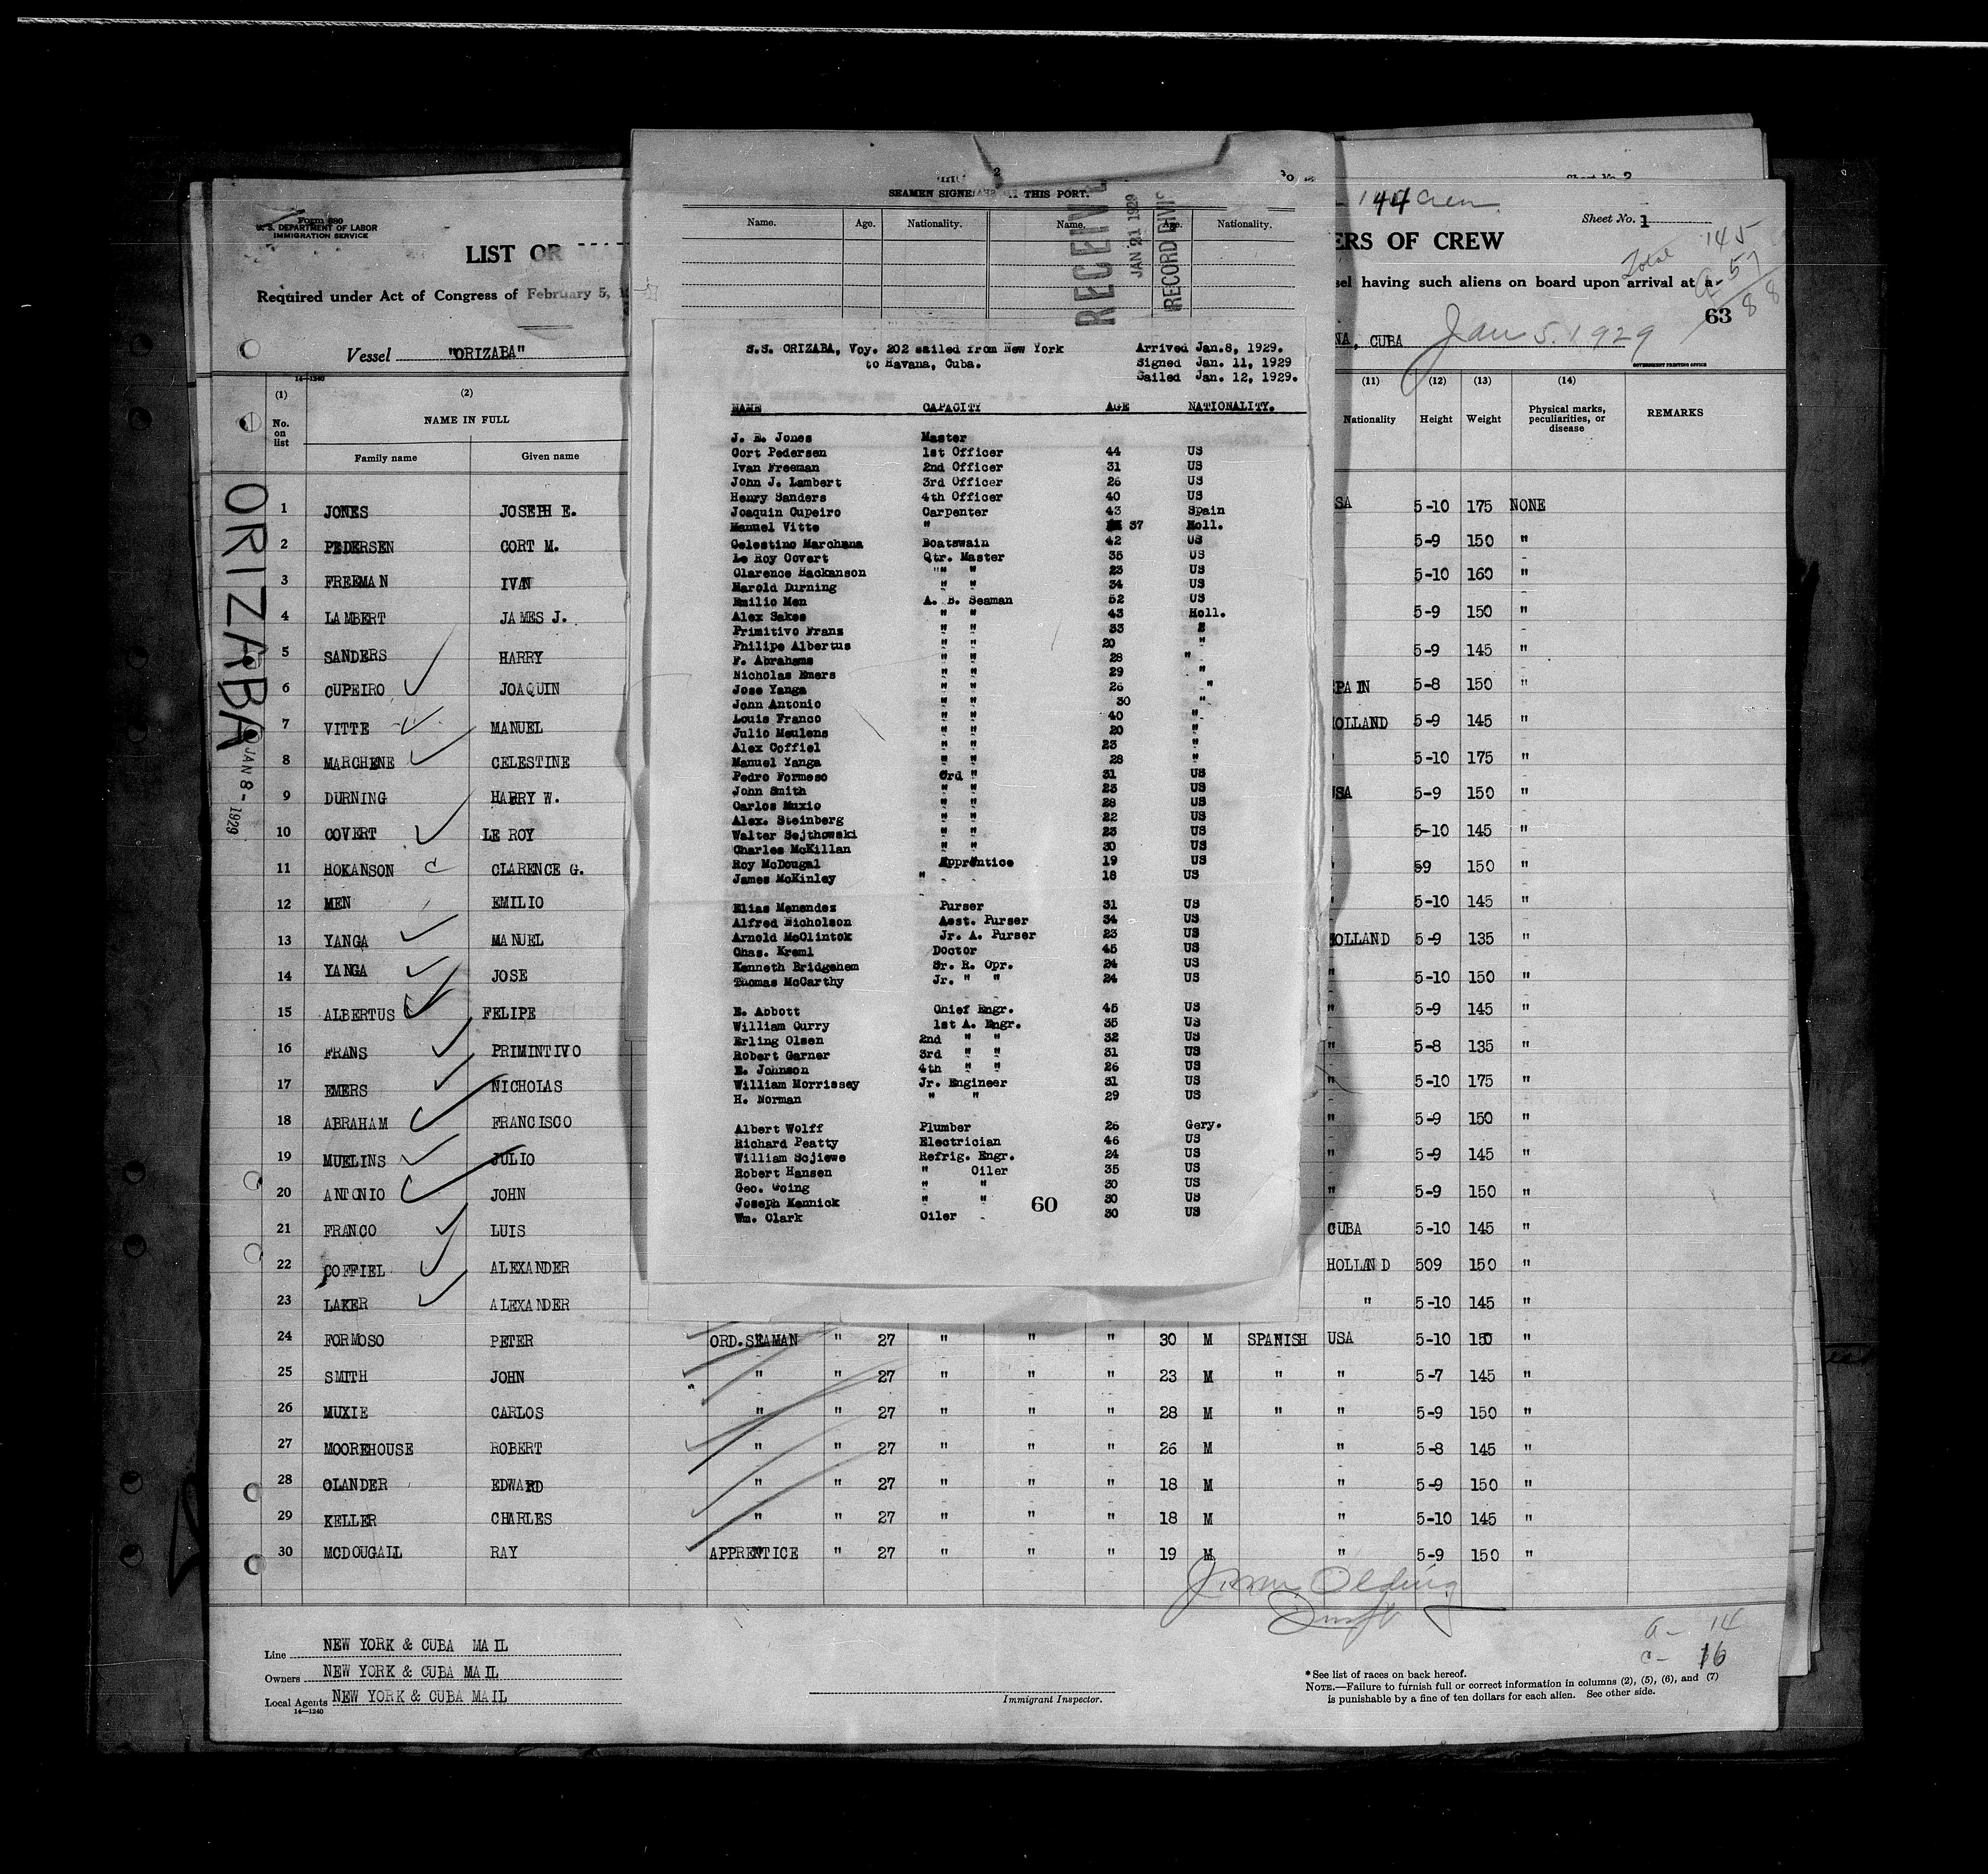 Form 680
U. S. DEPARTMENT OF LABOR
IMMIGRATION SERVICE
LIST OR
Required under Act of Congress of February 5,
Vessel "ORIZABA"
14—1240
(1) (2)
No. on list
NAME IN FULL
Family name Given name
ORIZABA
JAN 8 - 1929
1 JONES JOSEPH E.
2 PEDERSEN CORT M.
3 FREEMAN IVAN
4 LAMBERT JAMES J.
5 SANDERS HARRY
6 CUPEIRO JOAQUIN
7 VITTE MANUEL
8 MARCHENE CELESTINE
9 DURNING HARRY W.
10 COVERT LE ROY
11 HOKANSON C CLARENCE G.
12 MEN EMILIO
13 YANGA MANUEL
14 YANGA JOSE
15 ALBERTUS FELIPE
16 FRANS PRIMINTIVO
17 EMERS NICHOLAS
18 ABRAHAM FRANCISCO
19 MUELINS JULIO
20 ANTONIO JOHN
21 FRANCO LUIS
22 COFFIEL ALEXANDER
23 LAKER ALEXANDER
24 FORMOSO PETER ORD.SEAMAN " 27 " " " 30 M SPANISH USA 5-10 150 "
25 SMITH JOHN " " 27 " " " 23 M " " 5-7 145 "
26 MUXIE CARLOS " " 27 " " " 28 M " " 5-9 150 "
27 MOOREHOUSE ROBERT " " 27 " " " 26 M " 5-8 145 "
28 OLANDER EDWARD " " 27 " " " 18 M " 5-9 150 "
29 KELLER CHARLES " " 27 " " " 18 M " 5-10 145 "
30 MCDOUGAIL RAY APPRENTICE " 27 " " " 19 M " 5-9 150 "
Line NEW YORK & CUBA MAIL
Owners NEW YORK & CUBA MAIL
Local Agents NEW YORK & CUBA MAIL
14—1240
Immigrant Inspector.
SEAMEN SIGNE THIS PORT.
Name. Age. Nationality. Name. Age. Nationality.
RECEIVE
JAN 21 1929
RECORD DIVIS
S.S. ORIZABA, Voy. 202 sailed from New York
to Havana, Cuba.
Arrived Jan.8, 1929.
Signed Jan. 11, 1929
Sailed Jan. 12, 1929.
NAME CAPACITY AGE NATIONALITY.
J. E. Jones Master
Cort Pedersen 1st Officer 44 US
Ivan Freeman 2nd Officer 31 US
John J. Lambert 3rd Officer 26 US
Henry Sanders 4th Officer 40 US
Joaquin Cupeiro Carpenter 43 Spain
Manuel Vitte " 37 Holl.
Celestino Marchena Boatswain 42 US
Le Roy Covert Qtr. Master 35 US
Clarence Hackanson " " 23 US
Harold Durning " " 34 US
Emilio Men A. B. Seaman 52 US
Alex Sakes " " 43 Holl.
Primitivo Frans " " 33 "
Philipe Albertus " " 20 "
F. Abrahams " " 28 "
Nicholas Emers " " 29 "
Jose Yanga " " 26 "
John Antonio " " 30 "
Louis Franco " " 40 "
Julio Meulens " " 20 "
Alex Coffiel " " 23 "
Manuel Yanga " " 28 "
Pedro Formeso Ord " 31 US
John Smith " " 23 US
Carlos Muxio " " 28 US
Alex. Steinberg " " 22 US
Walter Sejthowski " " 23 US
Charles McKillan " " 30 US
Roy McDougal Apprentice 19 US
James McKinley " 18 US
Elias Menendez Purser 31 US
Alfred Nicholson Asst. Purser 34 US
Arnold McClintok Jr. A. Purser 23 US
Chas. Kreml Doctor 45 US
Kenneth Bridgehem Sr. R. Opr. 24 US
Thomas McCarthy Jr. " " 24 US
E. Abbott Chief Engr. 45 US
William Curry 1st A. Engr. 35 US
Erling Olsen 2nd " " 32 US
Robert Garner 3rd " " 31 US
E. Johnson 4th " " 26 US
William Morrissey Jr. Engineer 31 US
H. Norman " " 29 US
Albert Wolff Plumber 26 Gery.
Richard Peatty Electrician 46 US
William Scjiewe Refrig. Engr. 24 US
Robert Hansen " Oiler 35 US
Geo. Going " " 30 US
Joseph Kennick " " 30 US
Wm. Clark Oiler 30 US
60
144 Crew
Sheet No. 1
ERS OF CREW
Total 145
a- 57
88
sel having such aliens on board upon arrival at a-
63
NA, CUBA Jan 5. 1929
GOVERNMENT PRINTING OFFICE
(11) (12) (13) (14)
Nationality Height Weight Physical marks, peculiarities, or disease REMARKS
SA 5-10 175 NONE
5-9 150 "
5-10 160 "
5-9 150 "
5-9 145 "
PAIN 5-8 150 "
OLLAND 5-9 145 "
" 5-10 175 "
USA 5-9 150 "
" 5-10 145 "
" 59 150 "
" 5-10 145 "
HOLLAND 5-9 135 "
" 5-10 150 "
" 5-9 145 "
" 5-8 135 "
" 5-10 175 "
" 5-9 150 "
" 5-9 145 "
" 5-9 150 "
CUBA 5-10 145 "
HOLLAND 509 150 "
" 5-10 145 "
Olding
a- 14
c- 16
*See list of races on back hereof.
NOTE.—Failure to furnish full or correct information in columns (2), (5), (6), and (7)
is punishable by a fine of ten dollars for each alien. See other side.